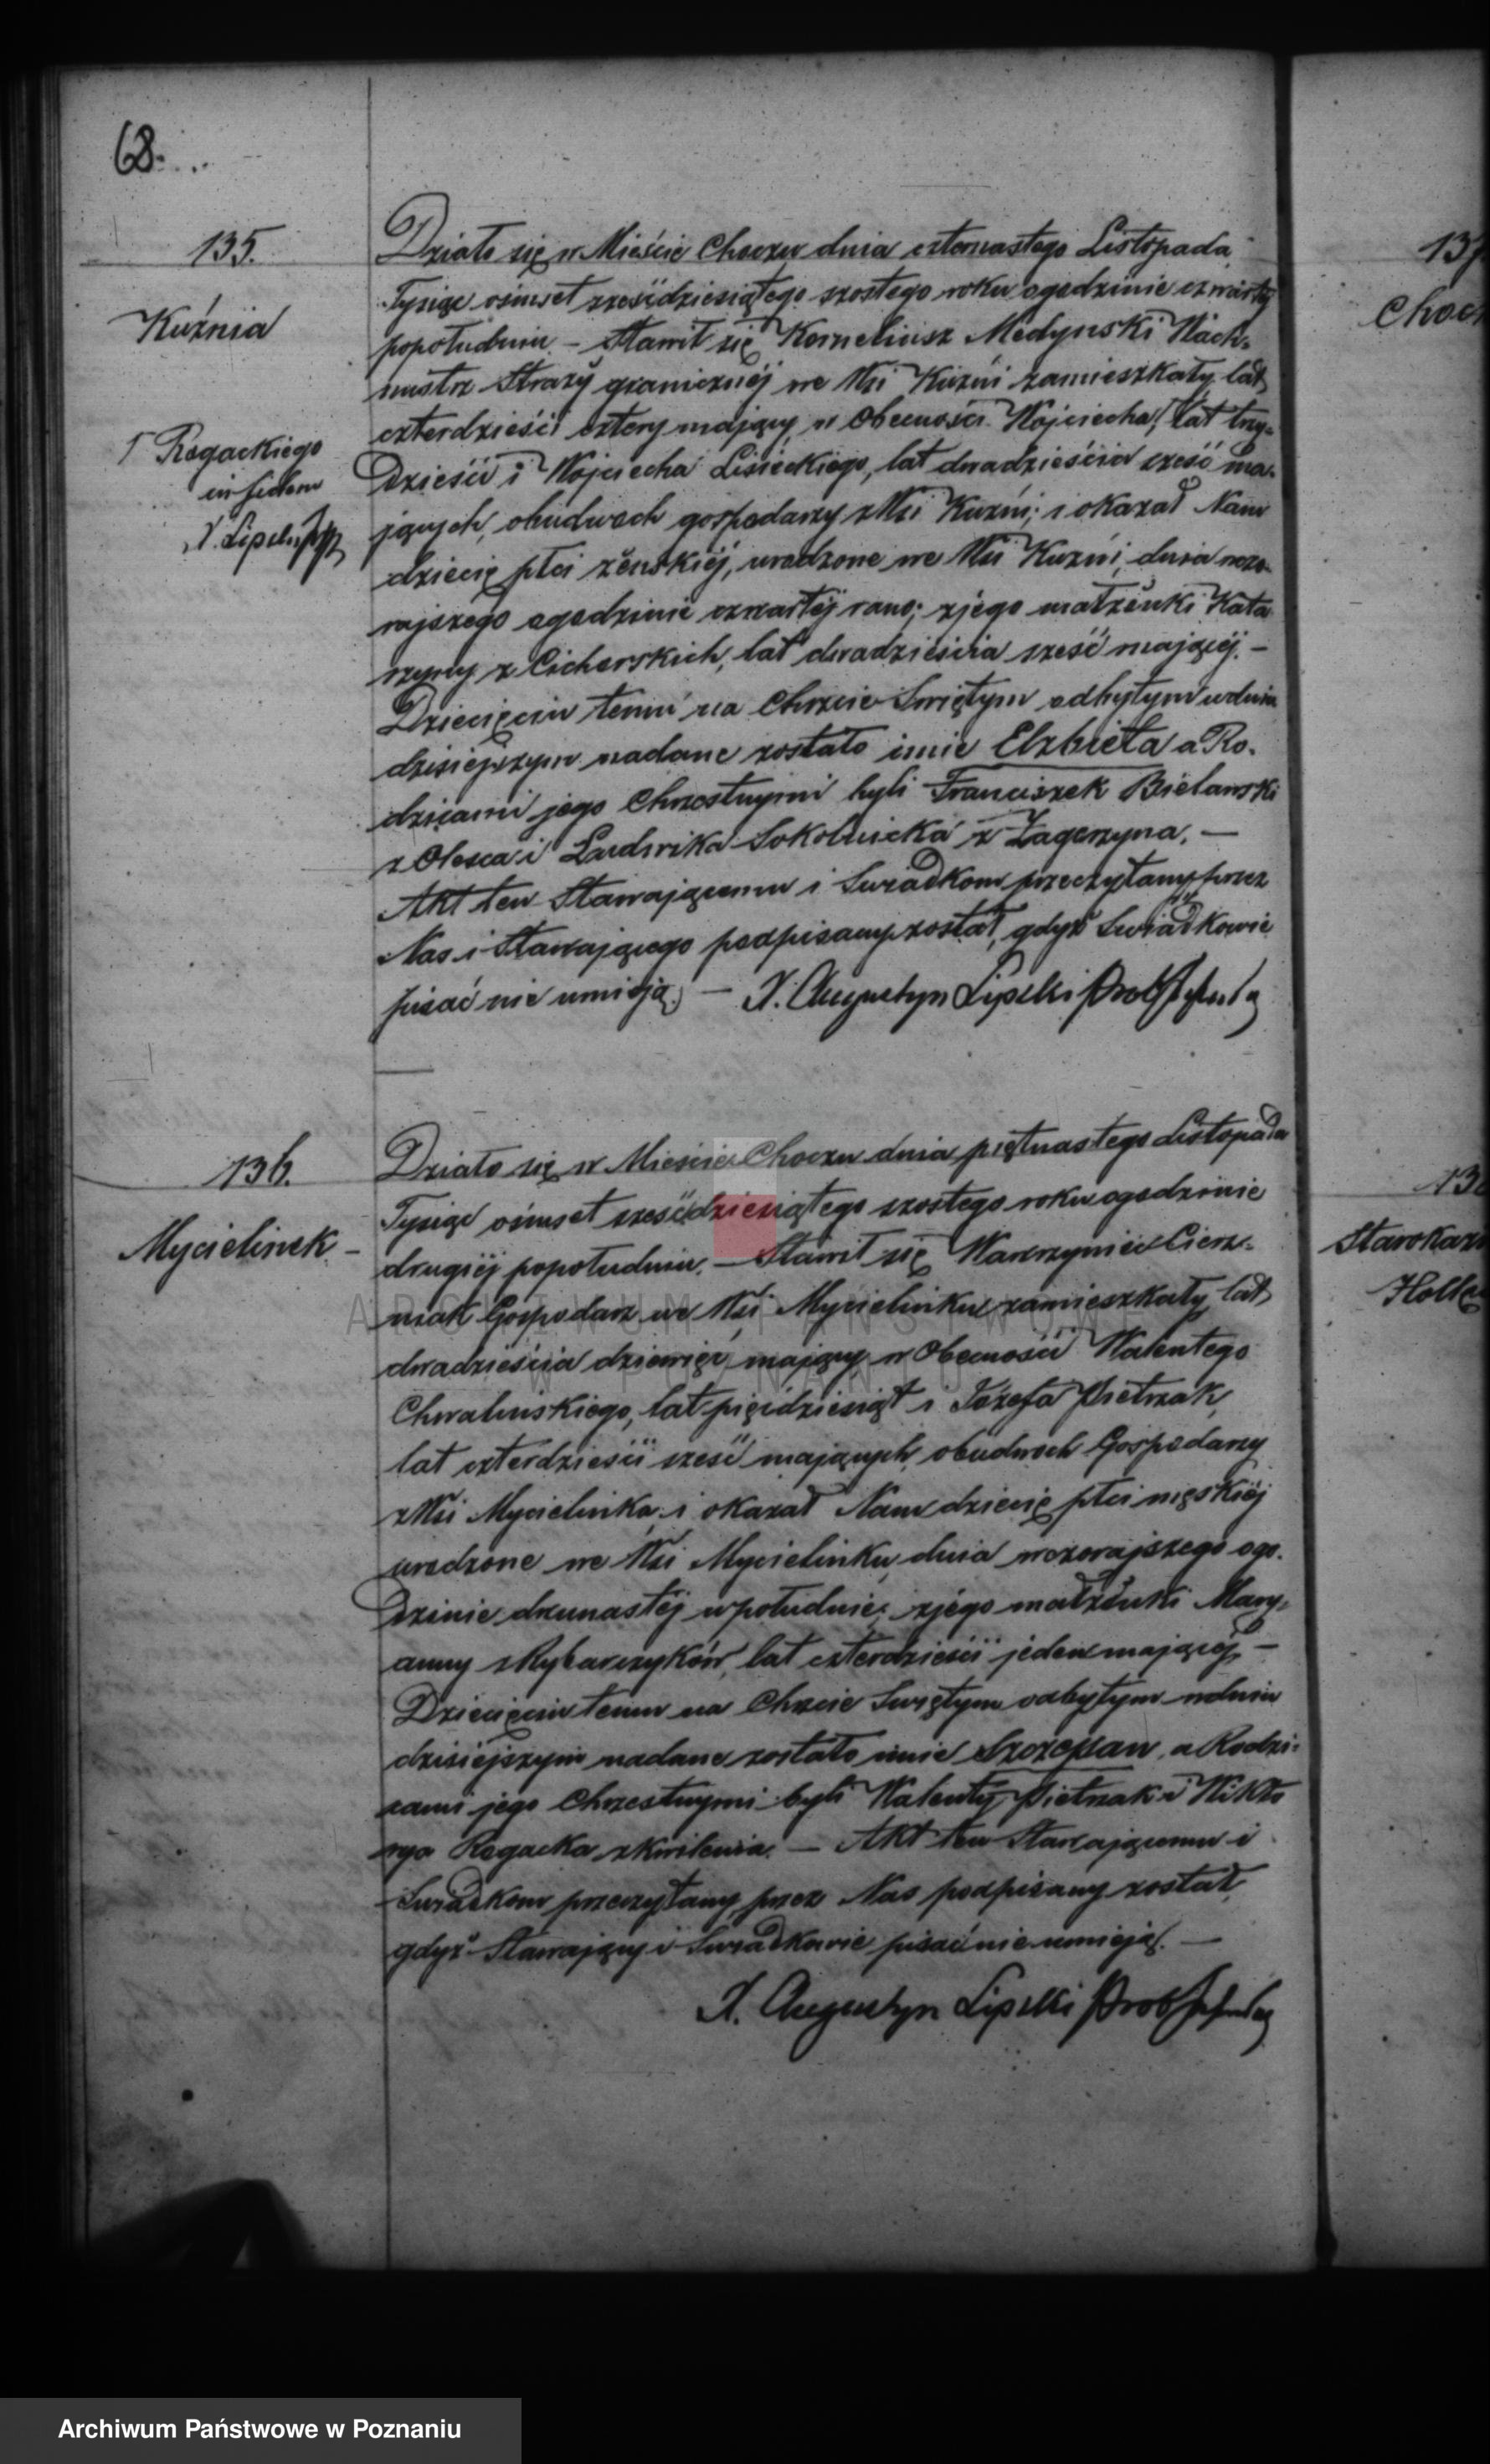 68.
135.
Kuźnia
Γ Rogackiego
in fidem
X. Lipski
Działo się w Mieście Choczu dnia czternastego Listopada
Tysiąc ośmset sześćdziesiątego szóstego roku ogodzinie czwartéj
popołudniu – Stawił się Korneliusz Medynski Wach-
mistrz Straży granicznéj we Wsi Kuźni zamieszkały, lat
czterdzieści cztery mający, w Obecności Wojciecha Γ lat trzy-
dzieści i Wojciecha Lisieckiego, lat dwadzieścia sześć ma-
jących, obudwóch gospodarzy z Wsi Kuźni; i okazał Nam
dziecię płci żeńskiéj, urodzone we Wsi Kuźni, dnia wczo-
rajszego ogodzinie czwartéj rano; zjego małżonki Kata-
rzyny z Cichorskich, lat dwadzieścia sześć mającéj. –
Dziecięciu temu na Chrzcie Świętym odbytym wdniu
dzisiejszym nadane zostało imie Elżbieta a Ro-
dzicami jego Chrzestnymi byli Franciszek Bielawski
z Olesca i Ludwika Sokolnicka z Zagorzyna. –
Akt ten Stawającemu i Swiadkom przeczytany, przez
Nas i Stawającego podpisany został, gdyż Swiadkowie
pisać nie umieją. – X. Augustyn Lipski Prob
136.
Mycielinek –
Działo się w Mieście Choczu dnia piętnastego Listopada
Tysiąc ośmset sześćdziesiątego szóstego roku ogodzinie
drugiéj popołudniu. – Stawił się Wawrzyniec Cierz-
niak Gospodarz we Wsi Mycielinku zamieszkały, lat
dwadzieścia dziewięć mający, w Obecności Walentego
Chwalinskiego, lat pięćdziesiąt i Józefa Pietrzak,
lat czterdzieści sześć mających, obudwóch Gospodarzy
z Wsi Mycielinka; i okazał Nam dziecię płci męskiéj
urodzone we Wsi Mycielinku, dnia wczorajszego ogo-
dzinie dwunastéj wpołudnie; zjégo małżonki Mary-
anny z Rybarczyków, lat czterdzieści jeden mającéj. –
Dziecięciu temu na Chrzcie Swiętym odbytym wdniu
dzisiejszym nadane zostało imie Szczepan, a Rodzi-
cami jego Chrzestnymi byli Walenty Pietrzak i Wikto-
rya Rogacka z Kwilenia. – Akt ten Stawającemu i
Swiadkom przeczytany, przez Nas podpisany został,
gdyż Stawający i Swiadkowie pisać nie umieją. –
X. Augustyn Lipski Prob
Choc
Starokaz
Holle
ARCHIWUM PAŃSTWOWE
W POZNANIU
Archiwum Państwowe w Poznaniu